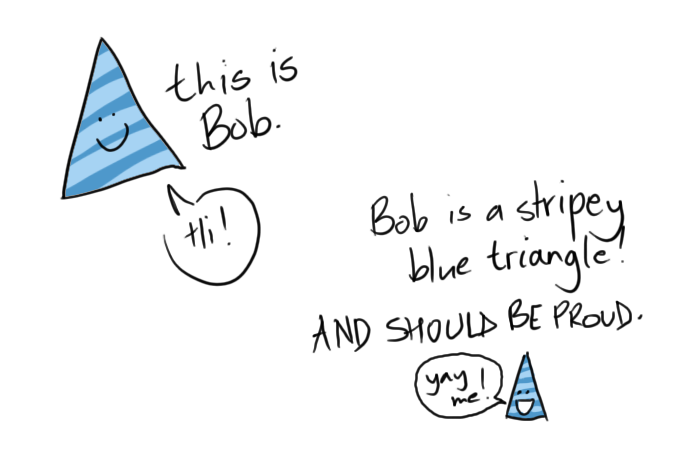 this is
Bob.
Hi!
Bob is a stripey
blue triangle!
AND SHOULD BE PROUD.
yay
me!